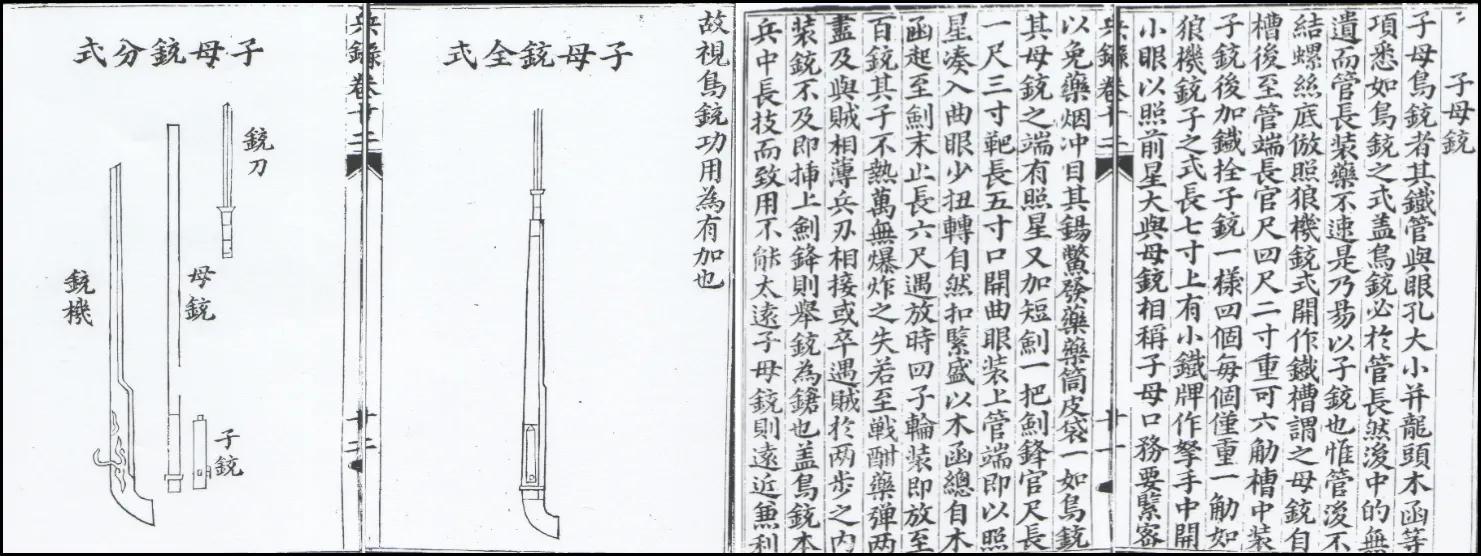 子母銃
子母鳥銃者其鐵管與眼孔大小并龍頭木函等
項悉如鳥銃之式盖鳥銃必於管長然後中的無
遺而管長装藥不速是乃易以子銃也惟管後不
結螺絲底倣照狼機銃式開作鐵槽謂之母銃自
槽後至管端長官尺四尺二寸重可六觔槽中装
子銃後加鐵拴子銃一様四個每個僅重一觔如
狼機銃子之式長七寸上有小鐵牌作拏手中開
小眼以照前星大與母銃相稱子母口務要緊密
兵錄卷十二
廿一
以免藥烟冲目其錫鱉發藥藥筒皮袋一如鳥銃
其母銃之端有照星又加短劍一把劍鋒官尺長
一尺三寸靶長五寸口開曲眼装上管端即以照
星凑入曲眼少扭轉自然扣緊盛以木函總自木
函起至劍末止長六尺遇放時四子輪装即放至
百銃其子不熱萬無爆炸之失若至戰酣藥弹两
盡及與賊相薄兵刃相接或卒遇賊於两步之内
装銃不及即揷上劍鋒則舉銃為鎗也盖鳥銃本
兵中長技而致用不能太遠子母銃則遠近兼利
故視鳥銃功用為有加也
子母銃全式
兵錄卷十二
廿二
子母銃分式
銃刀
母銃
子銃
銃機